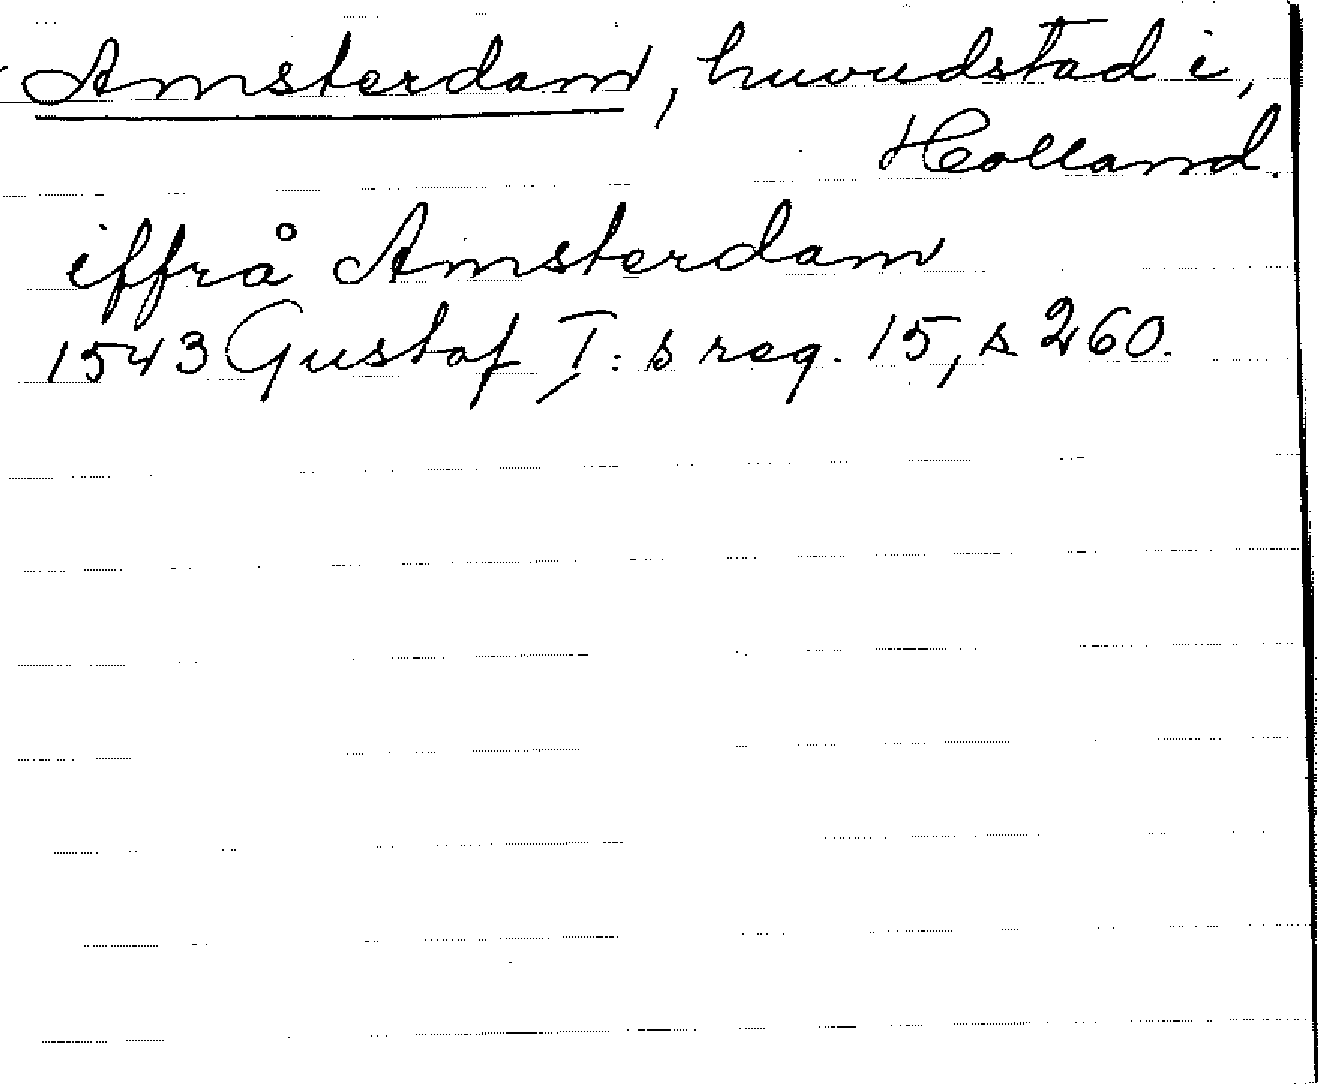 Amsterdam, huvudstad i,
Holland.
iffrå Amsterdam
1543 Gustaf I: s reg. 15, s 260.